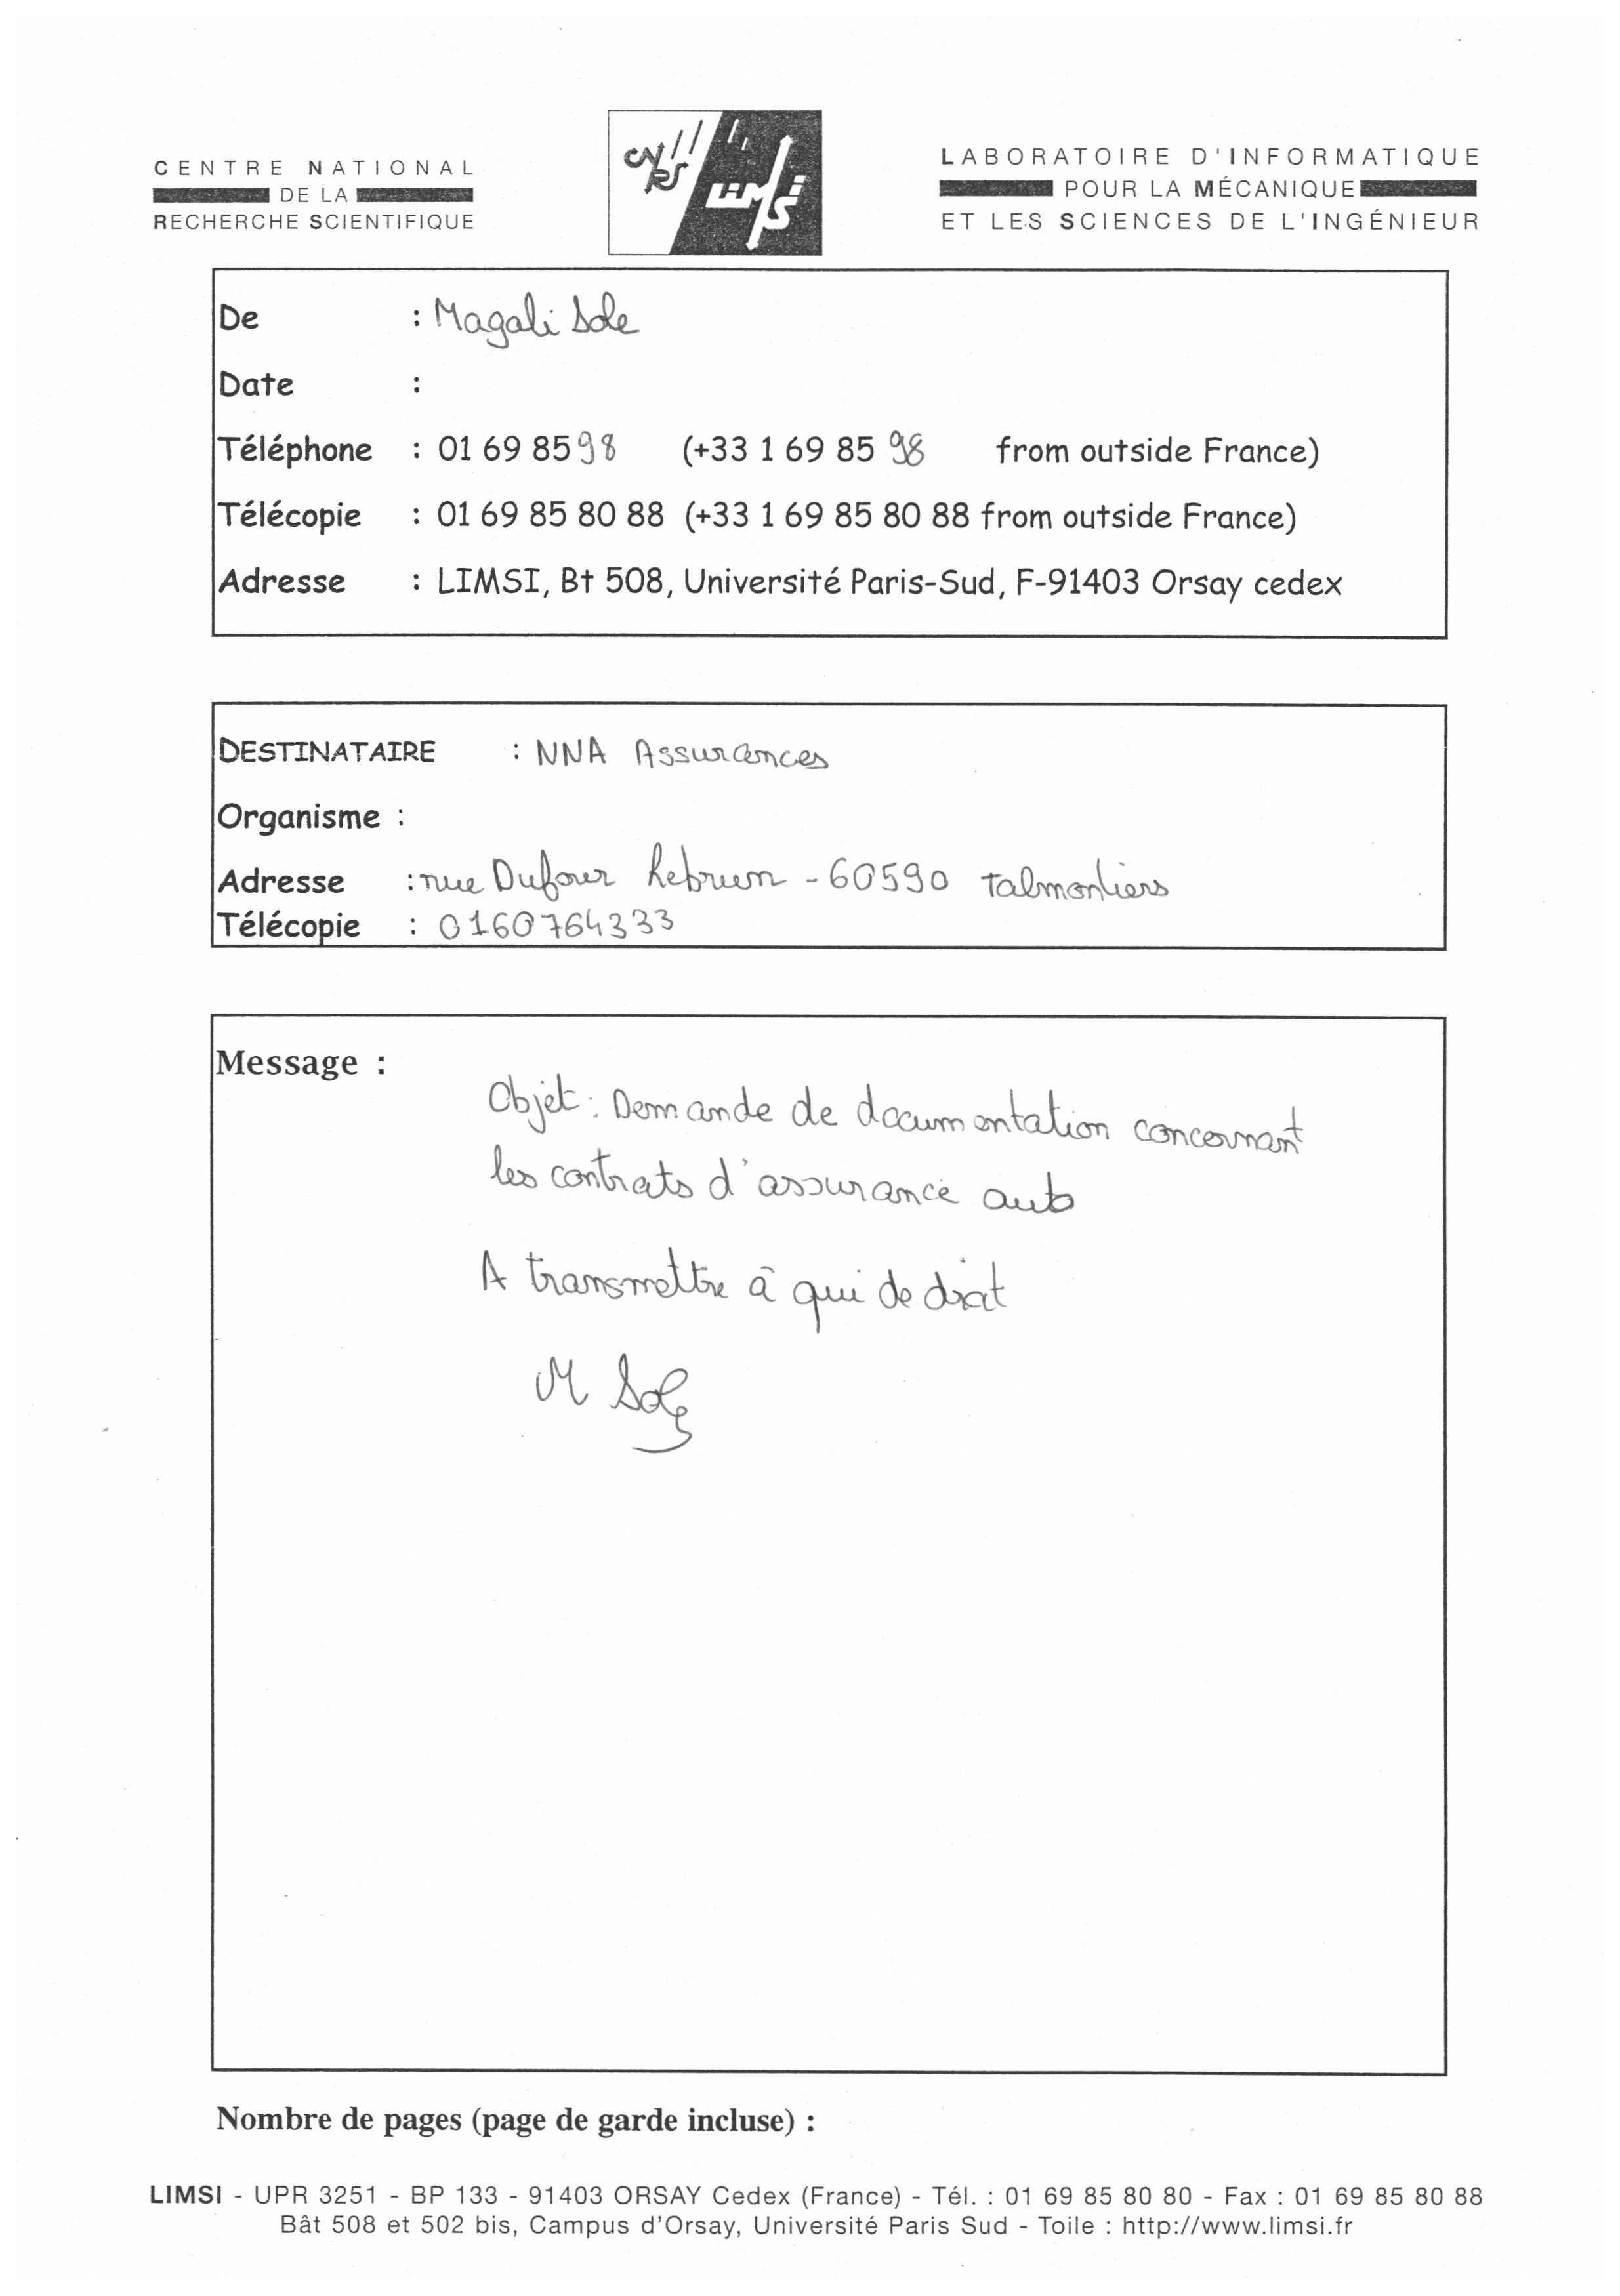 CENTRE NATIONAL
DE LA
RECHERCHE SCIENTIFIQUE
LIMSI
LABORATOIRE D'INFORMATIQUE
POUR LA MÉCANIQUE
ET LES SCIENCES DE L'INGÉNIEUR
De : Magali Sole
Date :
Téléphone : 01 69 85 98 (+33 1 69 85 98 from outside France)
Télécopie : 01 69 85 80 88 (+33 1 69 85 80 88 from outside France)
Adresse : LIMSI, Bt 508, Université Paris-Sud, F-91403 Orsay cedex
DESTINATAIRE : NNA Assurances
Organisme :
Adresse : rue Dufour Lebrun - 60590 Talmontiers
Télécopie : 0160764333
Message :
Objet : Demande de documentation concernant
les contrats d'assurance auto
A transmettre à qui de droit
M Sole
Nombre de pages (page de garde incluse) :
LIMSI - UPR 3251 - BP 133 - 91403 ORSAY Cedex (France) - Tél. : 01 69 85 80 80 - Fax : 01 69 85 80 88
Bât 508 et 502 bis, Campus d'Orsay, Université Paris Sud - Toile : http://www.limsi.fr